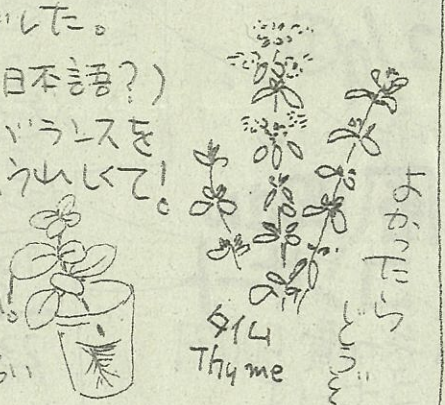 した。
日本語?)
バランスを
うれしくて!
。
い
タイム
Thyme
よかったら
どうぞ